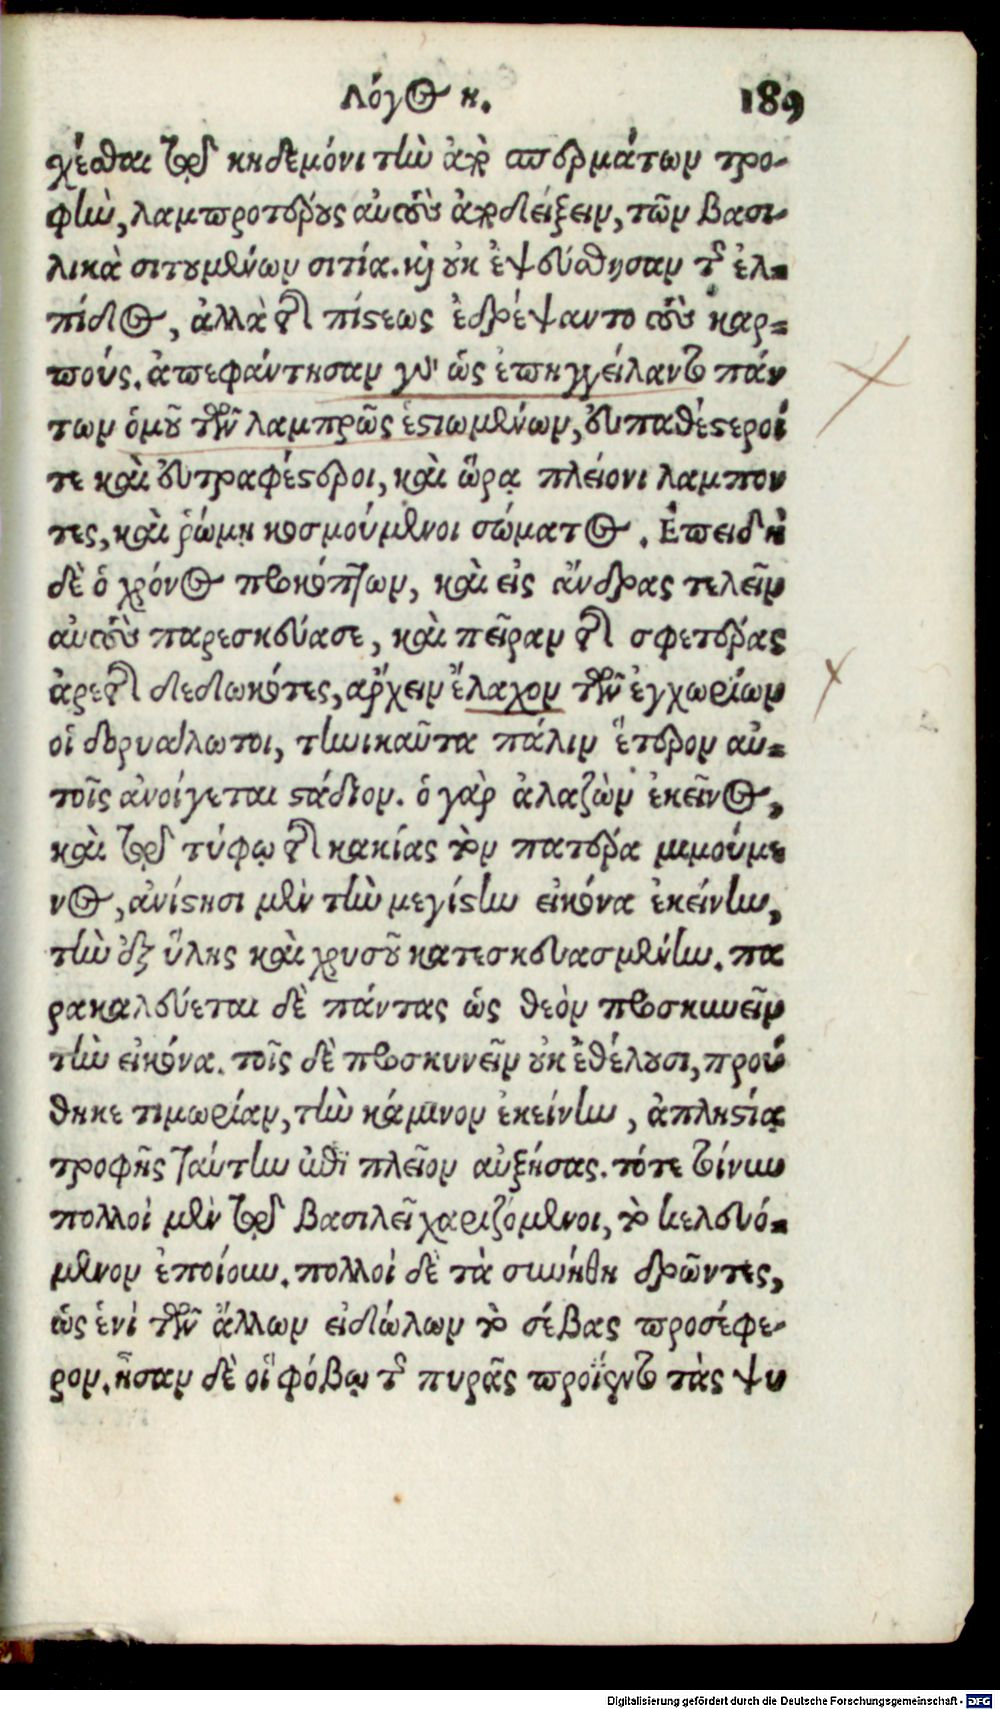 Λόγος κ. 189
χέσθαι τῷ κηδεμόνι τὴν ἀπὸ σπερμάτων τρο-
φὴν, λαμπροτέρους αὐτοὺς ἀποδείξειν, τῶν βασι-
λικὰ σιτουμένων σιτία. καὶ οὐκ ἐψεύσθησαν τῆς ἐλ-
πίδος, ἀλλὰ τῆς πίστεως ἐδρέψαντο τοὺς καρ-
ποὺς. ἀπεφάντησαν γοῦν ὡς ἐπηγγείλαντο πάν
των ὁμοῦ τῶν λαμπρῶς ἑστιωμένων, εὐπαθέστεροί
τε καὶ εὐτραφέστεροι, καὶ ὥρᾳ πλείονι λάμπον
τες, καὶ ῥώμῃ κοσμούμενοι σώματος. Ἐπειδὴ
δὲ ὁ χρόνος προκόπτων, καὶ εἰς ἄνδρας τελεῖν
αὐτοὺς παρεσκεύασε, καὶ πεῖραν τῆς σφετέρας
ἀρετῆς δεδωκότες, ἄρχειν ἔλαχον τῶν ἐγχωρίων
οἱ δορυάλωτοι, τηνικαῦτα πάλιν ἕτερον αὐ-
τοῖς ἀνοίγεται στάδιον. ὁ γὰρ ἀλαζὼν ἐκεῖνος,
καὶ τῷ τύφῳ τῆς κακίας τὸν πατέρα μιμούμε
νος, ἀνίστησι μὲν τὴν μεγίστην εἰκόνα ἐκείνην,
τὴν ἐξ ὕλης καὶ χρυσοῦ κατεσκευασμένην. πα
ρακελεύεται δὲ πάντας ὡς θεὸν προσκυνεῖν
τὴν εἰκόνα. τοῖς δὲ προσκυνεῖν οὐκ ἐθέλουσι, πρού
θηκε τιμωρίαν, τὴν κάμινον ἐκείνην, ἀπληστίᾳ
τροφῆς ταύτην ἐπὶ πλεῖον αὐξήσας. τότε τοίνυν
πολλοὶ μὲν τῷ βασιλεῖ χαριζόμενοι, τὸ κελευό-
μενον ἐποίουν. πολλοὶ δὲ τὰ συνήθη δρῶντες,
ὡς ἑνὶ τῶν ἄλλων εἰδώλων τὸ σέβας προσέφε-
ρον. ἦσαν δὲ οἳ φόβῳ τῆς πυρᾶς προΐεντο τὰς ψυ
Digitalisierung gefördert durch die Deutsche Forschungsgemeinschaft - DFG